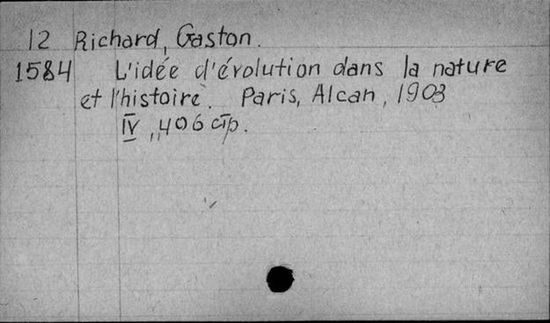 12 Richard, Gaston.
1584 L'idée d'évolution dans la nature
et l'histoire. Paris, Alcan, 1903
IV, 406 стр.